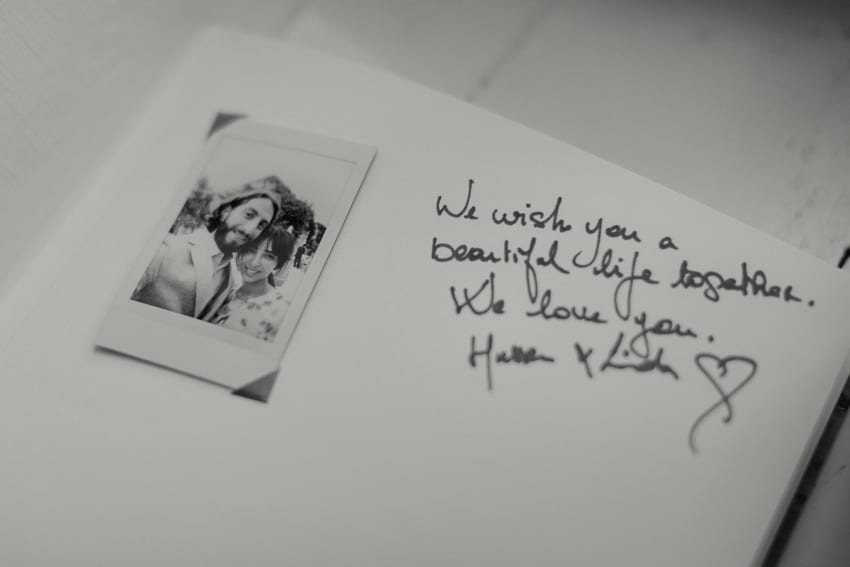 We wish you a
beautiful life together.
We love you.
& Linda